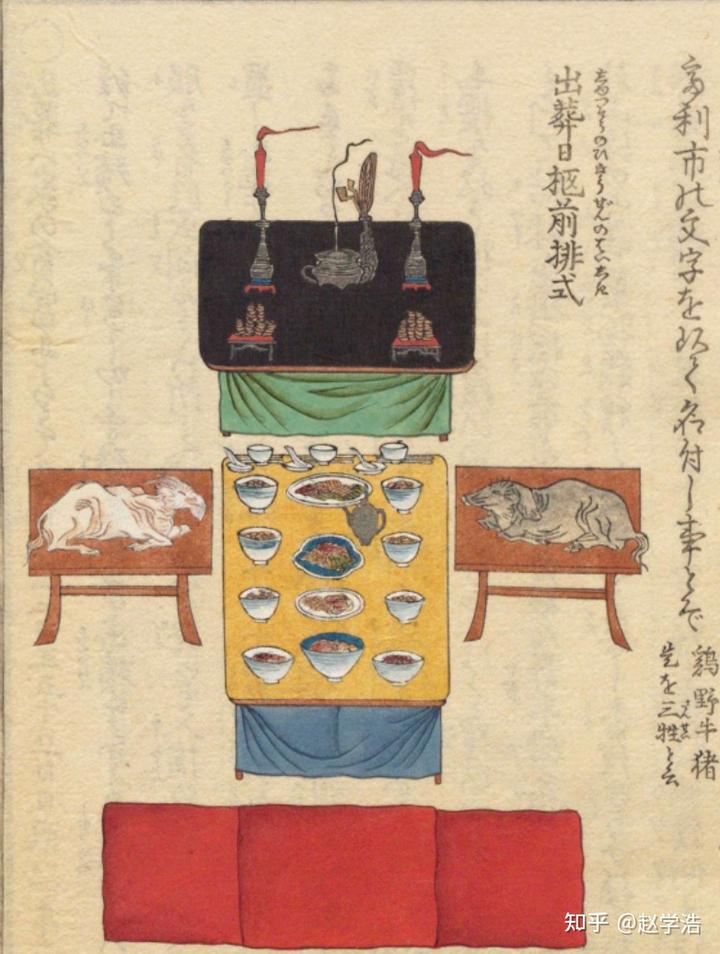 利市の文字を以て名付し事とぞ
鶏野牛猪
是を三牲と云
しゆつそうのひきうぜんのはいしき
出葬日柩前排式
知乎 @赵学浩